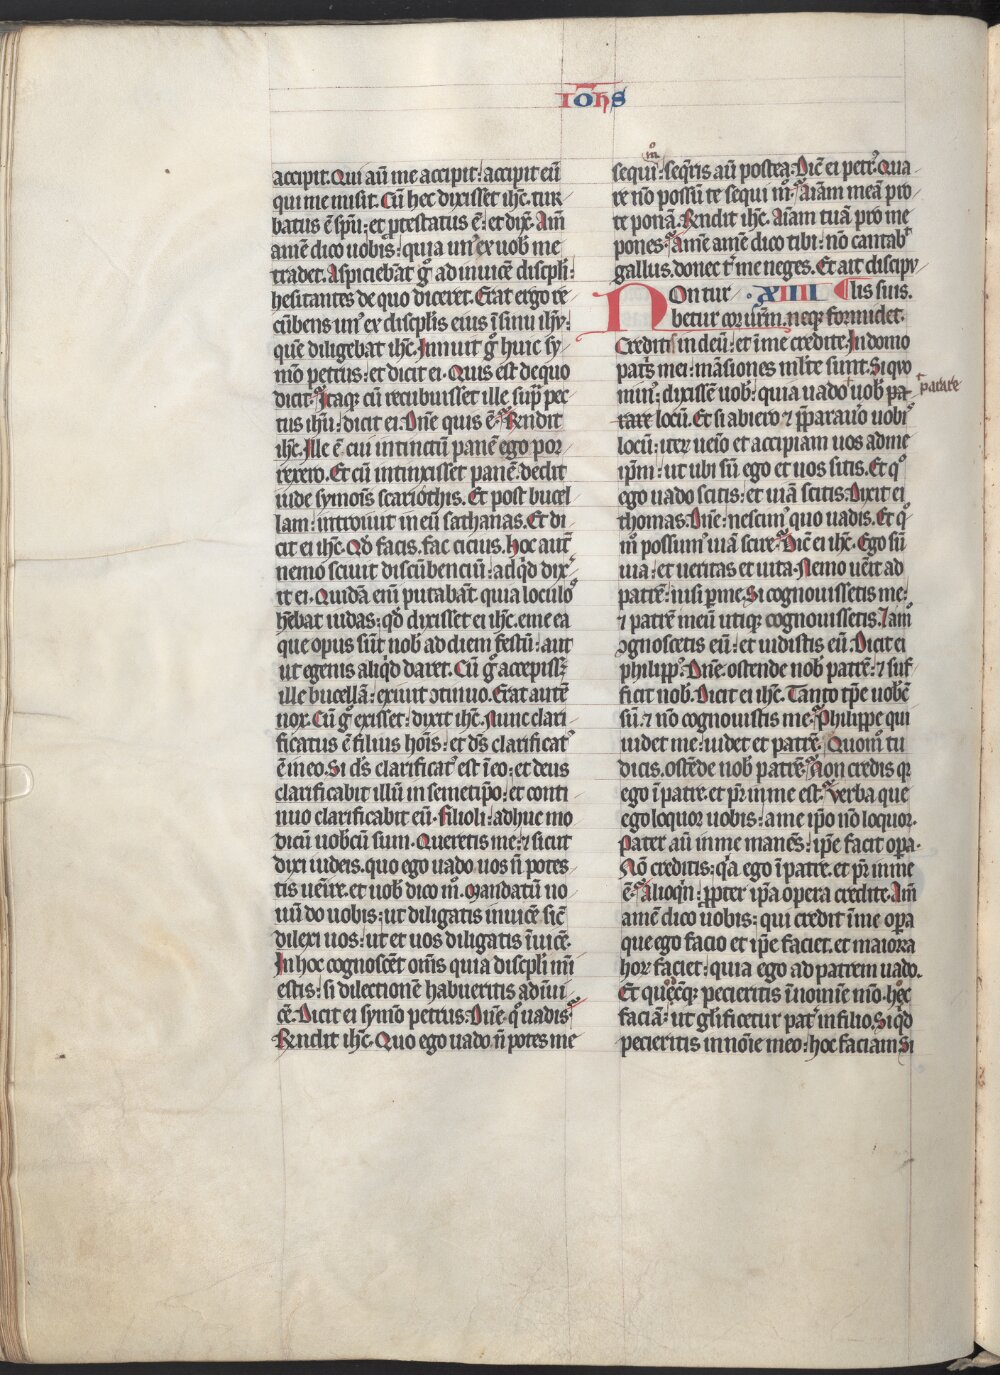 Ioh̅s
accipit. Qui au̅ me accipit: accipit eu̅
qui me misit. Cu̅ hec dixisset ihc̅. tur
batus e̅ sp̅u: et ꝓtestatus e̅: et dix̅. Am̅
ame̅ dico uobis: quia un᾽ ex uob᾽ me
tradet. Aspicieba̅t g̊ ad inuice̅ discip̅li:
hesitantes de quo diceret. Erat ergo re
cu̅bens un᾽ ex discip̅lis eius i̅ sinu ih̅u:
que̅ diligebat ihc̅. Innuit g̊ huic sy
mo̅ petrus: et dicit ei. Quis est de quo
dicit. Itaqꝫ cu̅ recubuisset ille sup̅ pec
tus ih̅u: dicit ei. Dn̅e quis e̅. Rn̅dit
ihc̅. Ille e̅ cui intinctu̅ pane̅ ego por
rexero. Et cu̅ intinxisset pane̅. dedit
iude symo̅is scariothis. Et post bucel
lam: introiuit in eu̅ sathanas. Et di
cit ei ihc̅. Qd̅ facis. fac cicius. hoc aut̅
nemo sciuit discu̅benciu̅: ad q̇d dix᾽
it ei. Quida̅ eni̅ putaba̅t quia loculo᾽
he̅bat iudas: qd̅ dixisset ei ihc̅. eme ea
que opus su̅t nob᾽ ad diem festu̅: aut
ut egenis aliq̇d daret. Cu̅ g̊ accepissꝫ
ille bucella̅: exiuit ↄtinuo. Erat aute̅
nox. Cu̅ g̊ exisset: dixit ihc̅. Nunc clari
ficatus e̅ filius ho̅is: et ds̅ clarificat᾽
e̅ in eo. Si ds̅ clarificat᾽ est i̅ eo: et deus
clarificabit illu̅ in semetip̅o: et conti
nuo clarificabit eu̅. filioli: adhuc mo
dicu̅ uobcu̅ sum. Queretis me: ⁊ sicut
dixi iudeis. quo ego uado uos n̅ potes
tis ue̅ire. et uob᾽ dico m̊. Mandatu̅ no
uu̅ do uobis: ut diligatis inuice̅ sic̅
dilexi uos: ut et uos diligatis i̅uice̅.
In hoc cognosce̅t om̅s quia discip̅li mi̅
estis: si dilectione̅ habueritis ad i̅ui
ce̅. Dicit ei symo̅ petrus. Dn̅e. q̊ uadis.
Rn̅dit ihc̅. Quo ego uado n̅ potes me
m̊
sequi: seq̅ris au̅ postea. Dic̅ ei petr᾽. Qua
re no̅ possu̅ te sequi m̊. Ai̅am mea̅ pro
te pona̅. Rn̅dit ihc̅. Ai̅am tua̅ pro me
pones. Ame̅ ame̅ dico tibi: no̅ cantab᾽
gallus. donec t᾽ me neges. Et ait discipu
Non tur XIIII lis suis.
betur cor ur̅m. neqꝫ formidet.
Creditis in deu̅: et i̅ me credite. In domo
patr̅s mei: ma̅siones mlte sunt. Si quo
min᾽: dixisse̅ uob᾽: quia uado uob᾽ pa
parare
rare locu̅. Et si abiero ⁊ p̅parauo̅ uobi᾽
locu̅: iter̅ ueio̅ et accipiam uos ad me
ip̅m: ut ubi su̅ ego et uos sitis. Et q̊
ego uado scitis: et uia̅ scitis. Dixit ei
thomas. Dn̅e: nescim᾽ quo uadis. Et q̊
m̊ possum᾽ uia̅ scire. Dic̅ ei ihc̅. Ego su̅
uia: et ueritas et uita. Nemo ue̅it ad
patre̅: nisi ꝑ me. Si cognouissetis me:
⁊ patre̅ meu̅ utiqꝫ cognouissetis. Iam᾽
ↄgnoscetis eu̅: et uidistis eu̅. Dicit ei
philipp᾽. Dn̅e. ostende nob᾽ patre̅: ⁊ suf
ficit nob᾽. Dicit ei ihc̅. Tanto tp̅e uobc̅
su̅. ⁊ no̅ cognouistis me. Philippe qui
uidet me: uidet et patre̅. Quom̊ tu
dicis. oste̅de nob᾽ patre̅. Non credis qꝛ
ego i̅ patre. et pr̅ in me est. Verba que
ego loquor uobis: a me ip̅o no̅ loquor.
Pater au̅ in me mane̅s: ip̅e facit op̅a.
No̅ creditis: q̇a ego i̅ patre. et pr̅ in me
e̅. Alioq̇n: ꝓpter ip̅a opera credite. Am̅
ame̅ dico uobis: qui credit i̅ me op̅a
que ego facio et ip̅e faciet. et maiora
hor̅ faciet: quia ego ad patrem uado.
Et que̅cqꝫ pecieritis i̅ nomine meo. hoc
facia̅: ut gl̅ificetur pat᾽ in filio. Si q̇d
pecieritis in no̅ie meo: hoc faciam Si